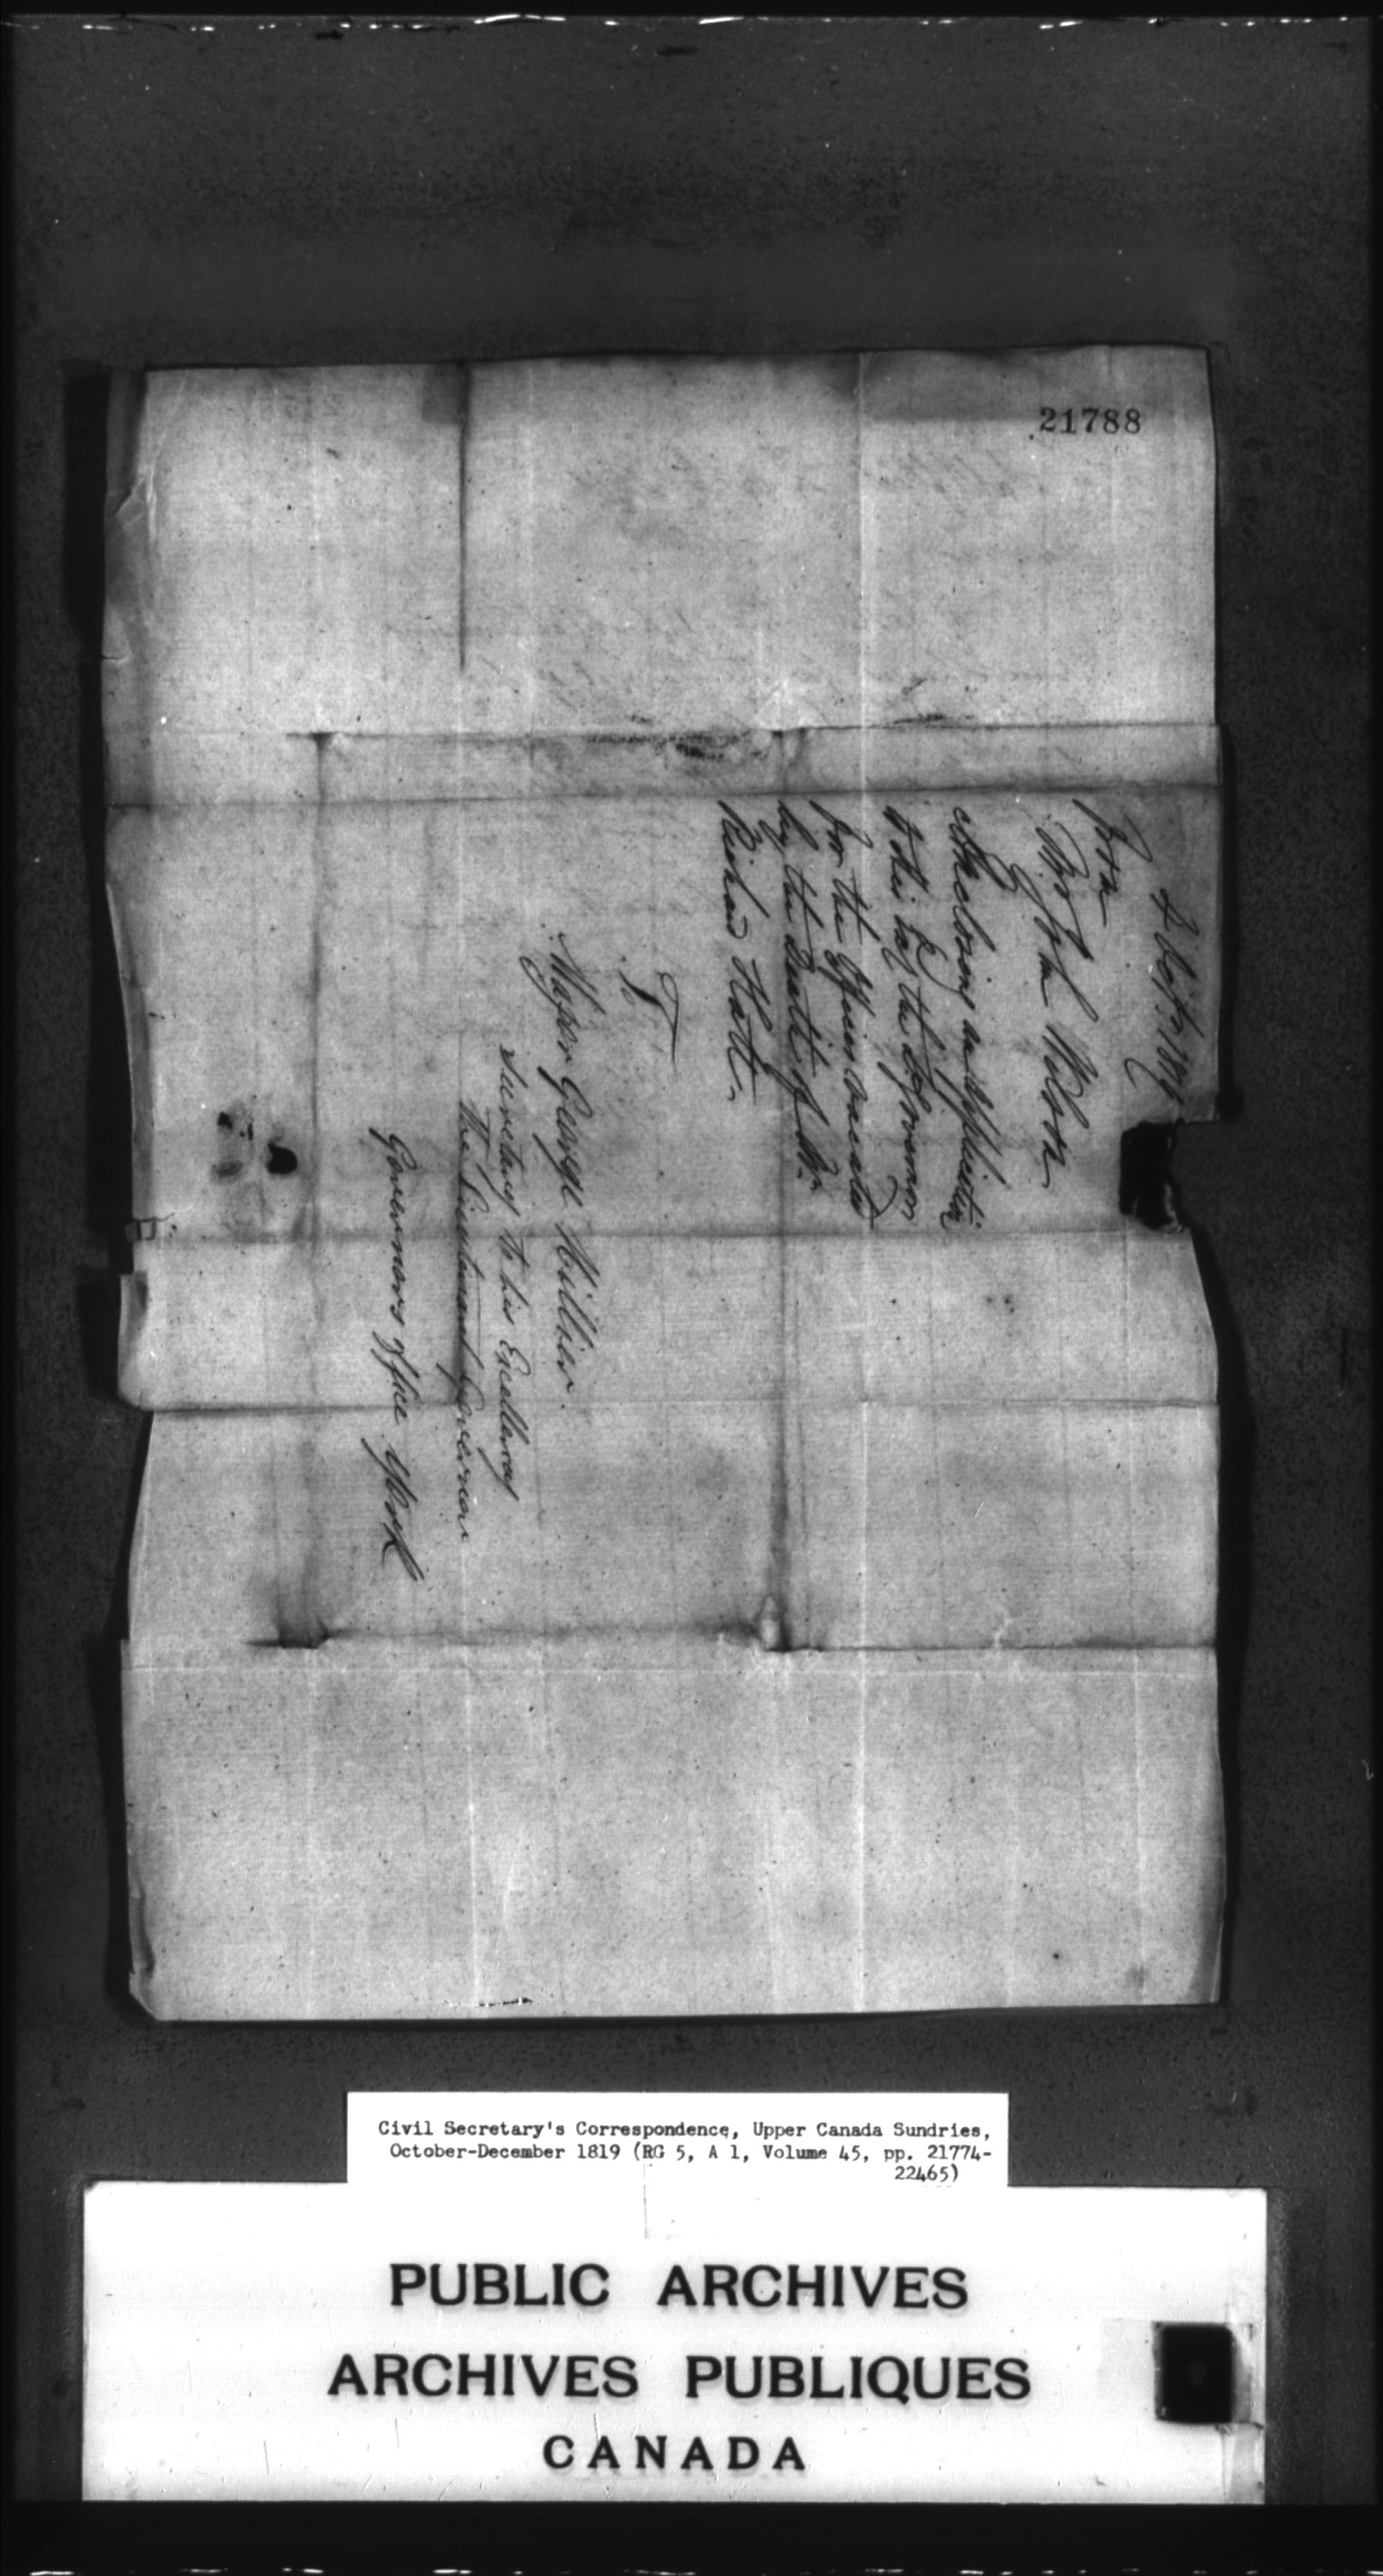 21788
2 Oct. 1819
From
Mr. John Wilson
enclosing an application
to his Exy the Lt. Governor
for the Offices vacated
by the Death of Mr.
Richard Hatt.
To
Major George Hillier
Secretary to his Excellency
The Lieutenant Governor
Governors office York
Civil Secretary's Correspondence, Upper Canada Sundries,
October-December 1819 (RG 5, A 1, Volume 45, pp. 21774-
22465)
PUBLIC ARCHIVES
ARCHIVES PUBLIQUES
CANADA